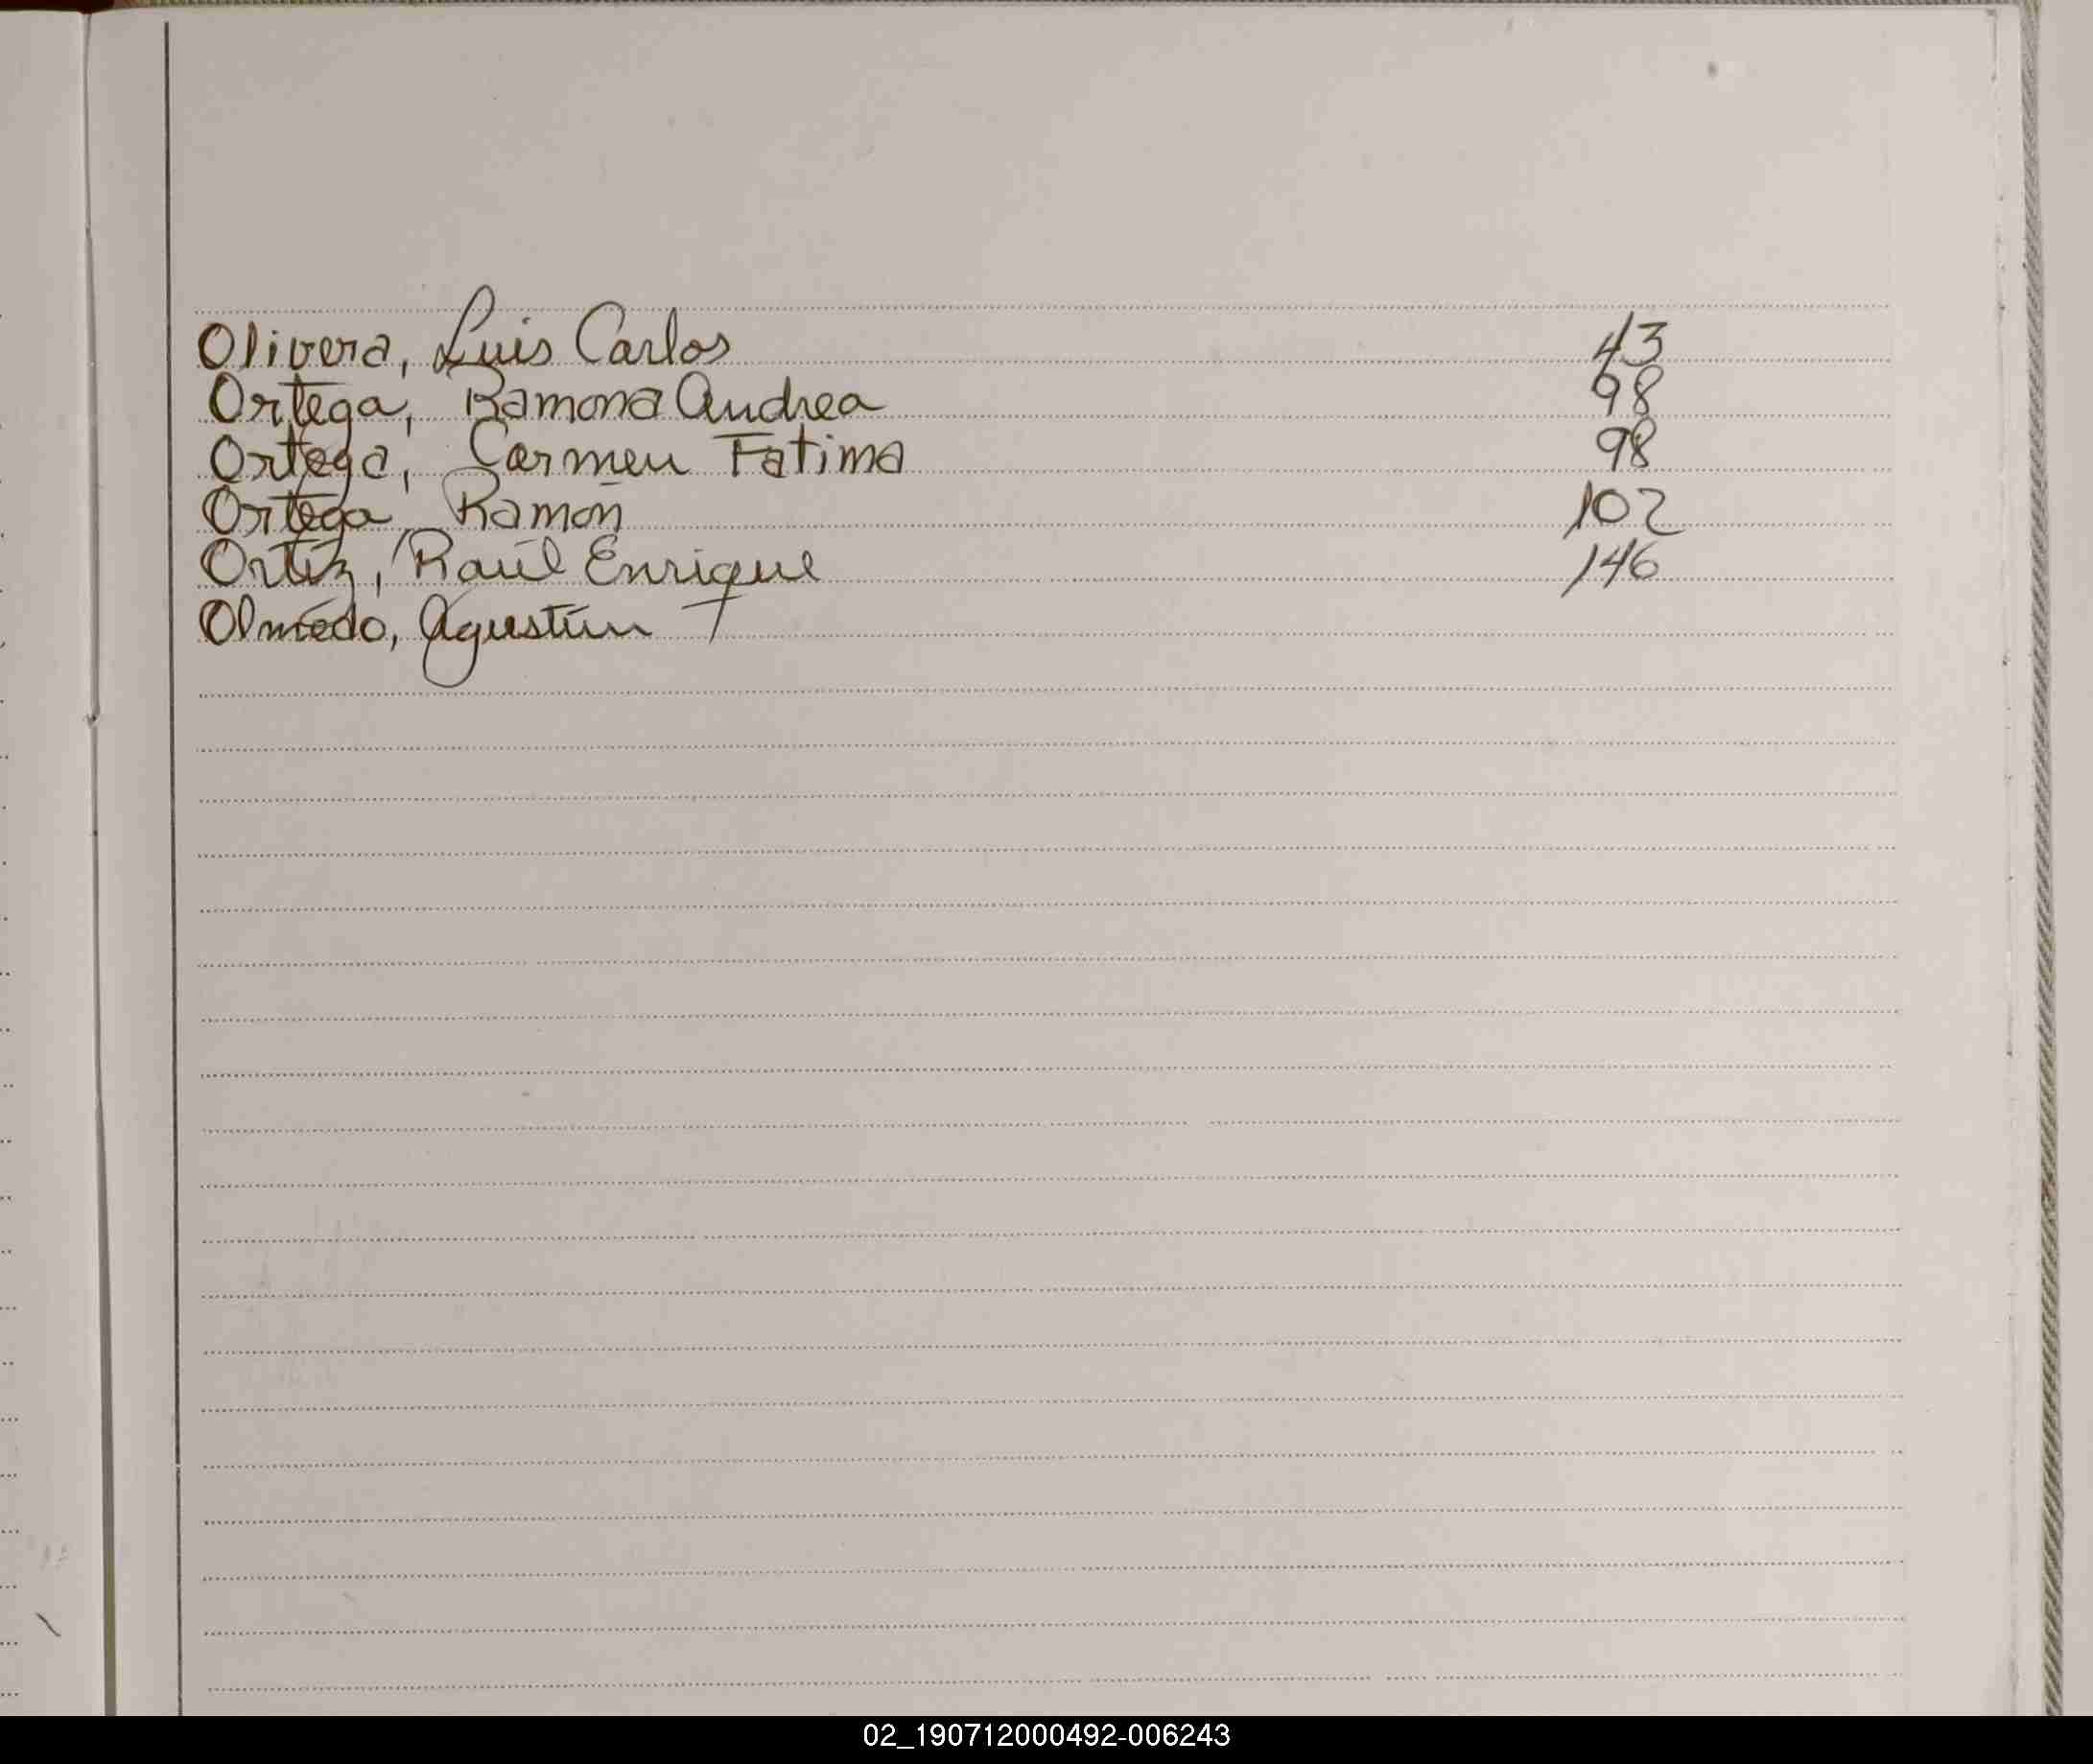 Olivera, Luis Carlos 43
Ortega, Ramona Andrea 98
Ortega, Carmen Fatima 98
Ortega, Ramón 102
Ortíz, Raúl Enrique 146
Olmedo, Agustín
02_190712000492-006243